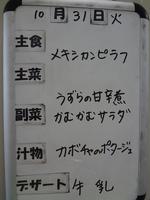 10月31日火
主食
メキシカンピラフ
主菜
うずらの甘辛煮
副菜
かむかむサラダ
汁物
カボチャのポタージュ
デザート 牛乳